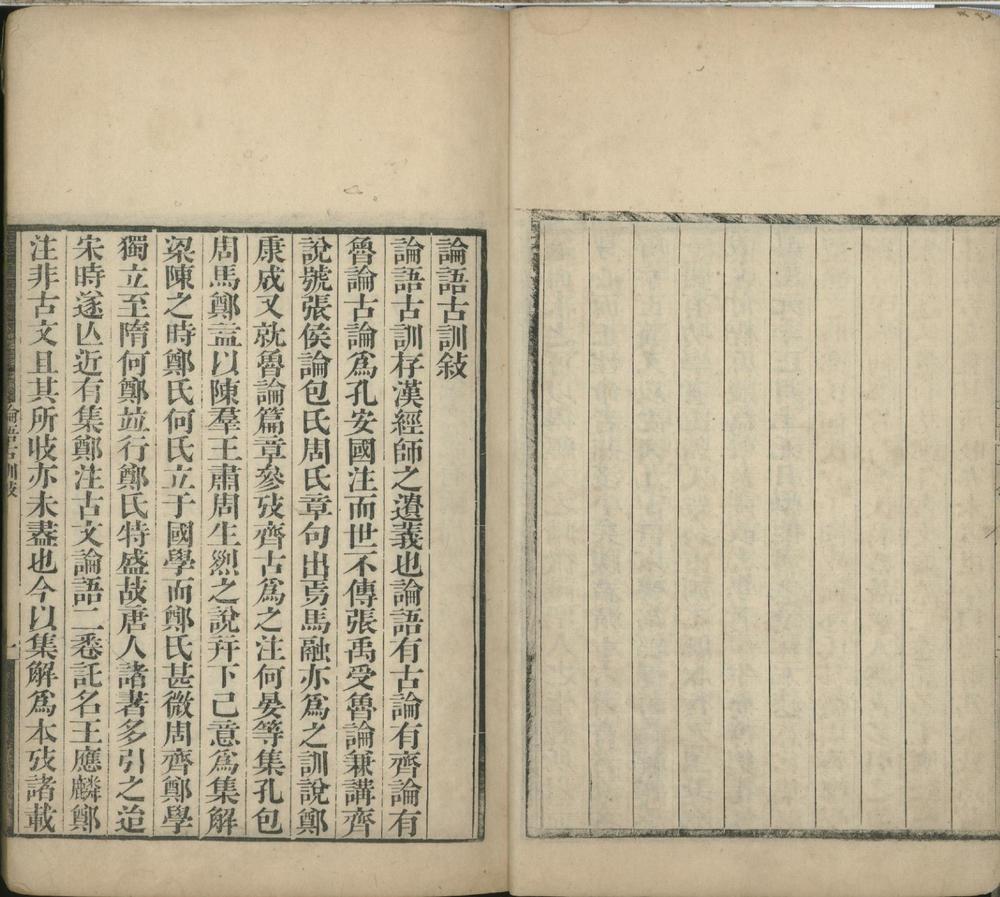 論語古訓敍
論語古訓存漢經師之遺義也論語有古論有齊論有
魯論古論爲孔安國注而世不傳張禹受魯論兼講齊
說號張侯論包氏周氏章句出焉馬融亦爲之訓說鄭
康成又就魯論篇章參攷齊古爲之注何晏等集孔包
周馬鄭葢以陳羣王肅周生烈之說幷下己意爲集解
梁陳之時鄭氏何氏立于國學而鄭氏甚微周齊鄭學
獨立至隋何鄭竝行鄭氏特盛故唐人諸著多引之迨
宋時遂亾近有集鄭注古文論語二卷託名王應麟鄭
注非古文且其所攱亦未盡也今以集解爲本攷諸載
論語古訓敍
一